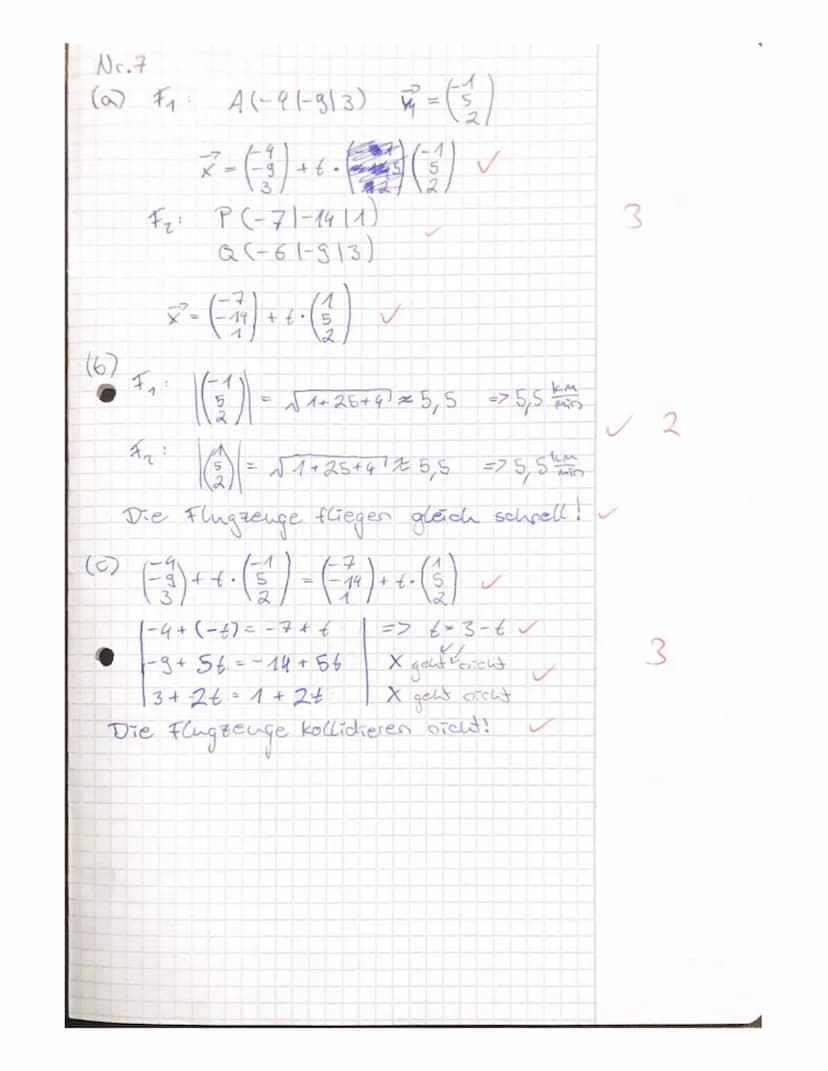 Nr.7
(a) F₁: A(-4|-9|3) v₁⃗ = (-1 5 2)
x⃗ = (-4 -9 3) + t · (-1 5 2) ✓
3
F₂: P(-7|-14|1)
Q(-6|-9|3) ✓
x⃗ = (-7 -14 1) + t · (1 5 2) ✓
(b)
F₁: |(-1 5 2)| = √1+25+4 ≈ 5,5 => 5,5 km/min
✓ 2
F₂: |(1 5 2)| = √1+25+4 ≈ 5,5 => 5,5 km/min
Die Flugzeuge fliegen gleich schnell! ✓
(c) (-4 -9 3) + t · (-1 5 2) = (-7 -14 1) + t · (1 5 2) ✓
|-4 + (-t) = -7 + t | => t = 3 - t ✓
|-9 + 5t = -14 + 5t | X geht nicht ✓
3
|3 + 2t = 1 + 2t | X geht nicht
Die Flugzeuge kollidieren nicht! ✓